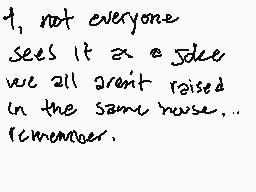 1, not everyone
sees it as a joke
we all aren't raised
in the same house...
remember.